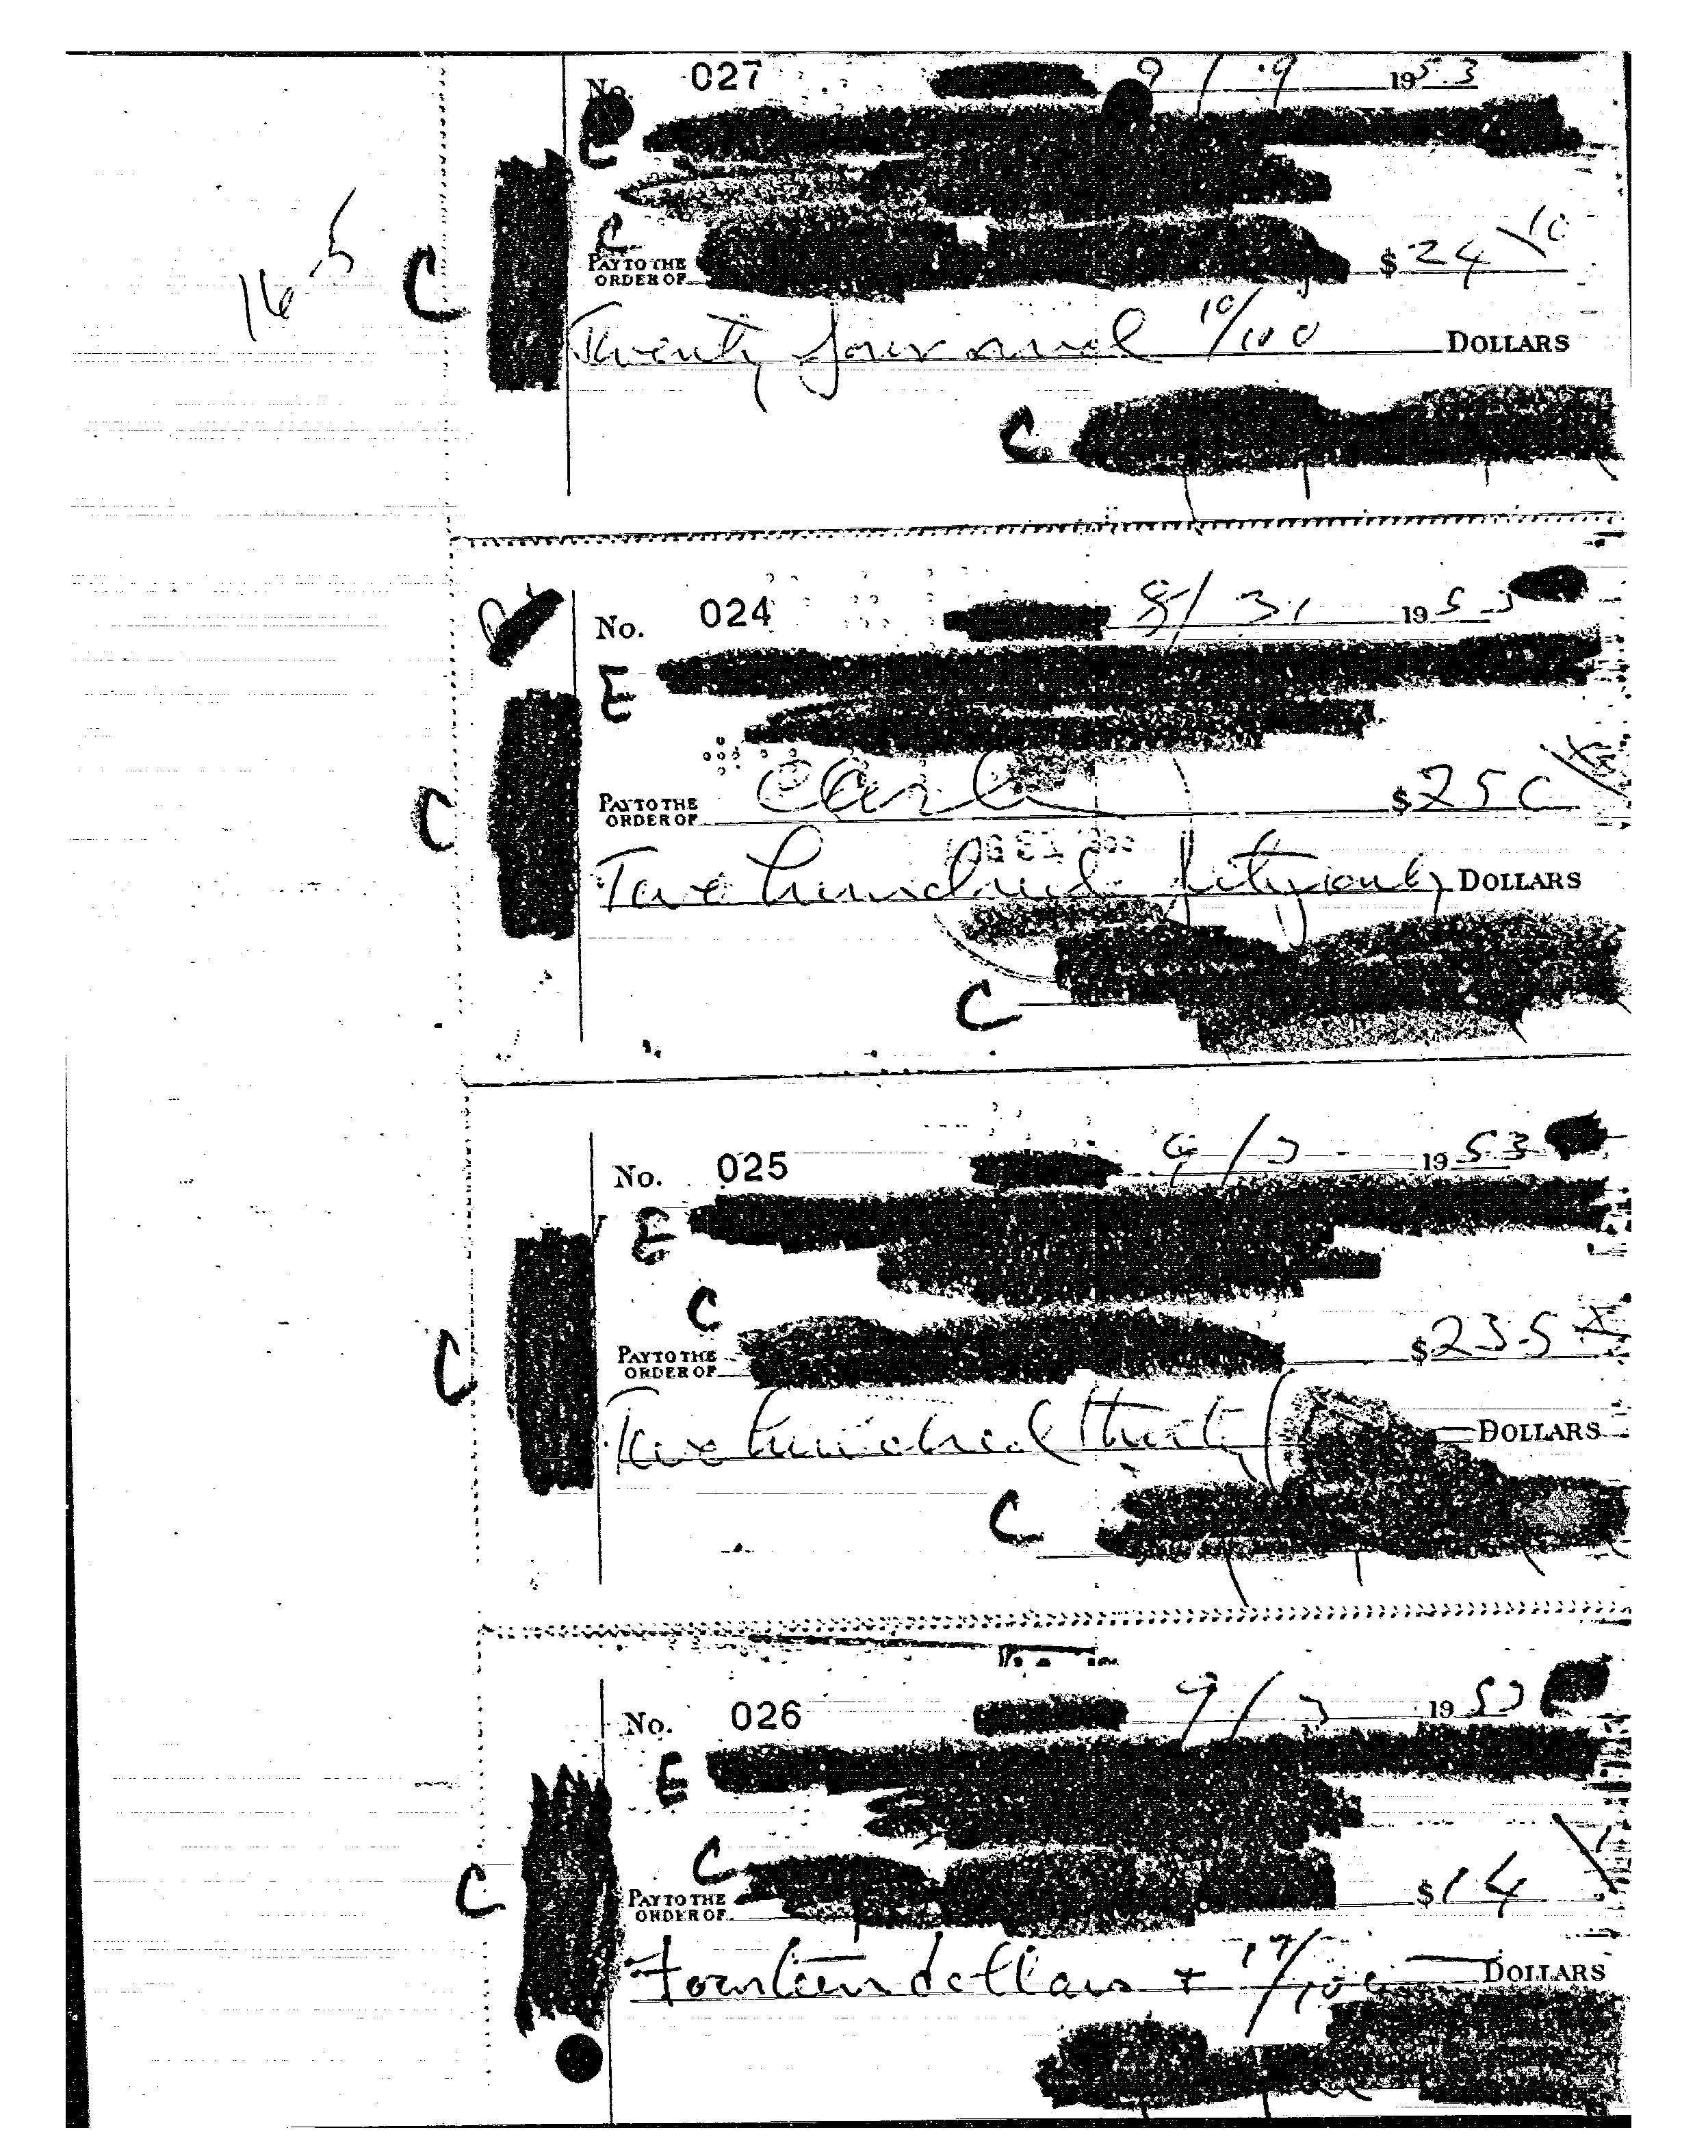 No. 027 9/9 1953
C
C
16 5
C
PAY TO THE ORDER OF $24 10
Twenty four and 10/100 DOLLARS
C
No. 024 8/31 1953
E
PAY TO THE ORDER OF Cash $250
C
Two hundred fifty only DOLLARS
C
No. 025 9/3 1953
E
C
PAY TO THE ORDER OF $235
C
Two hundred thirty DOLLARS
C
No. 026 9/3 1953
E
C
C
PAY TO THE ORDER OF $14
Fourteen dollars + 17/100 DOLLARS